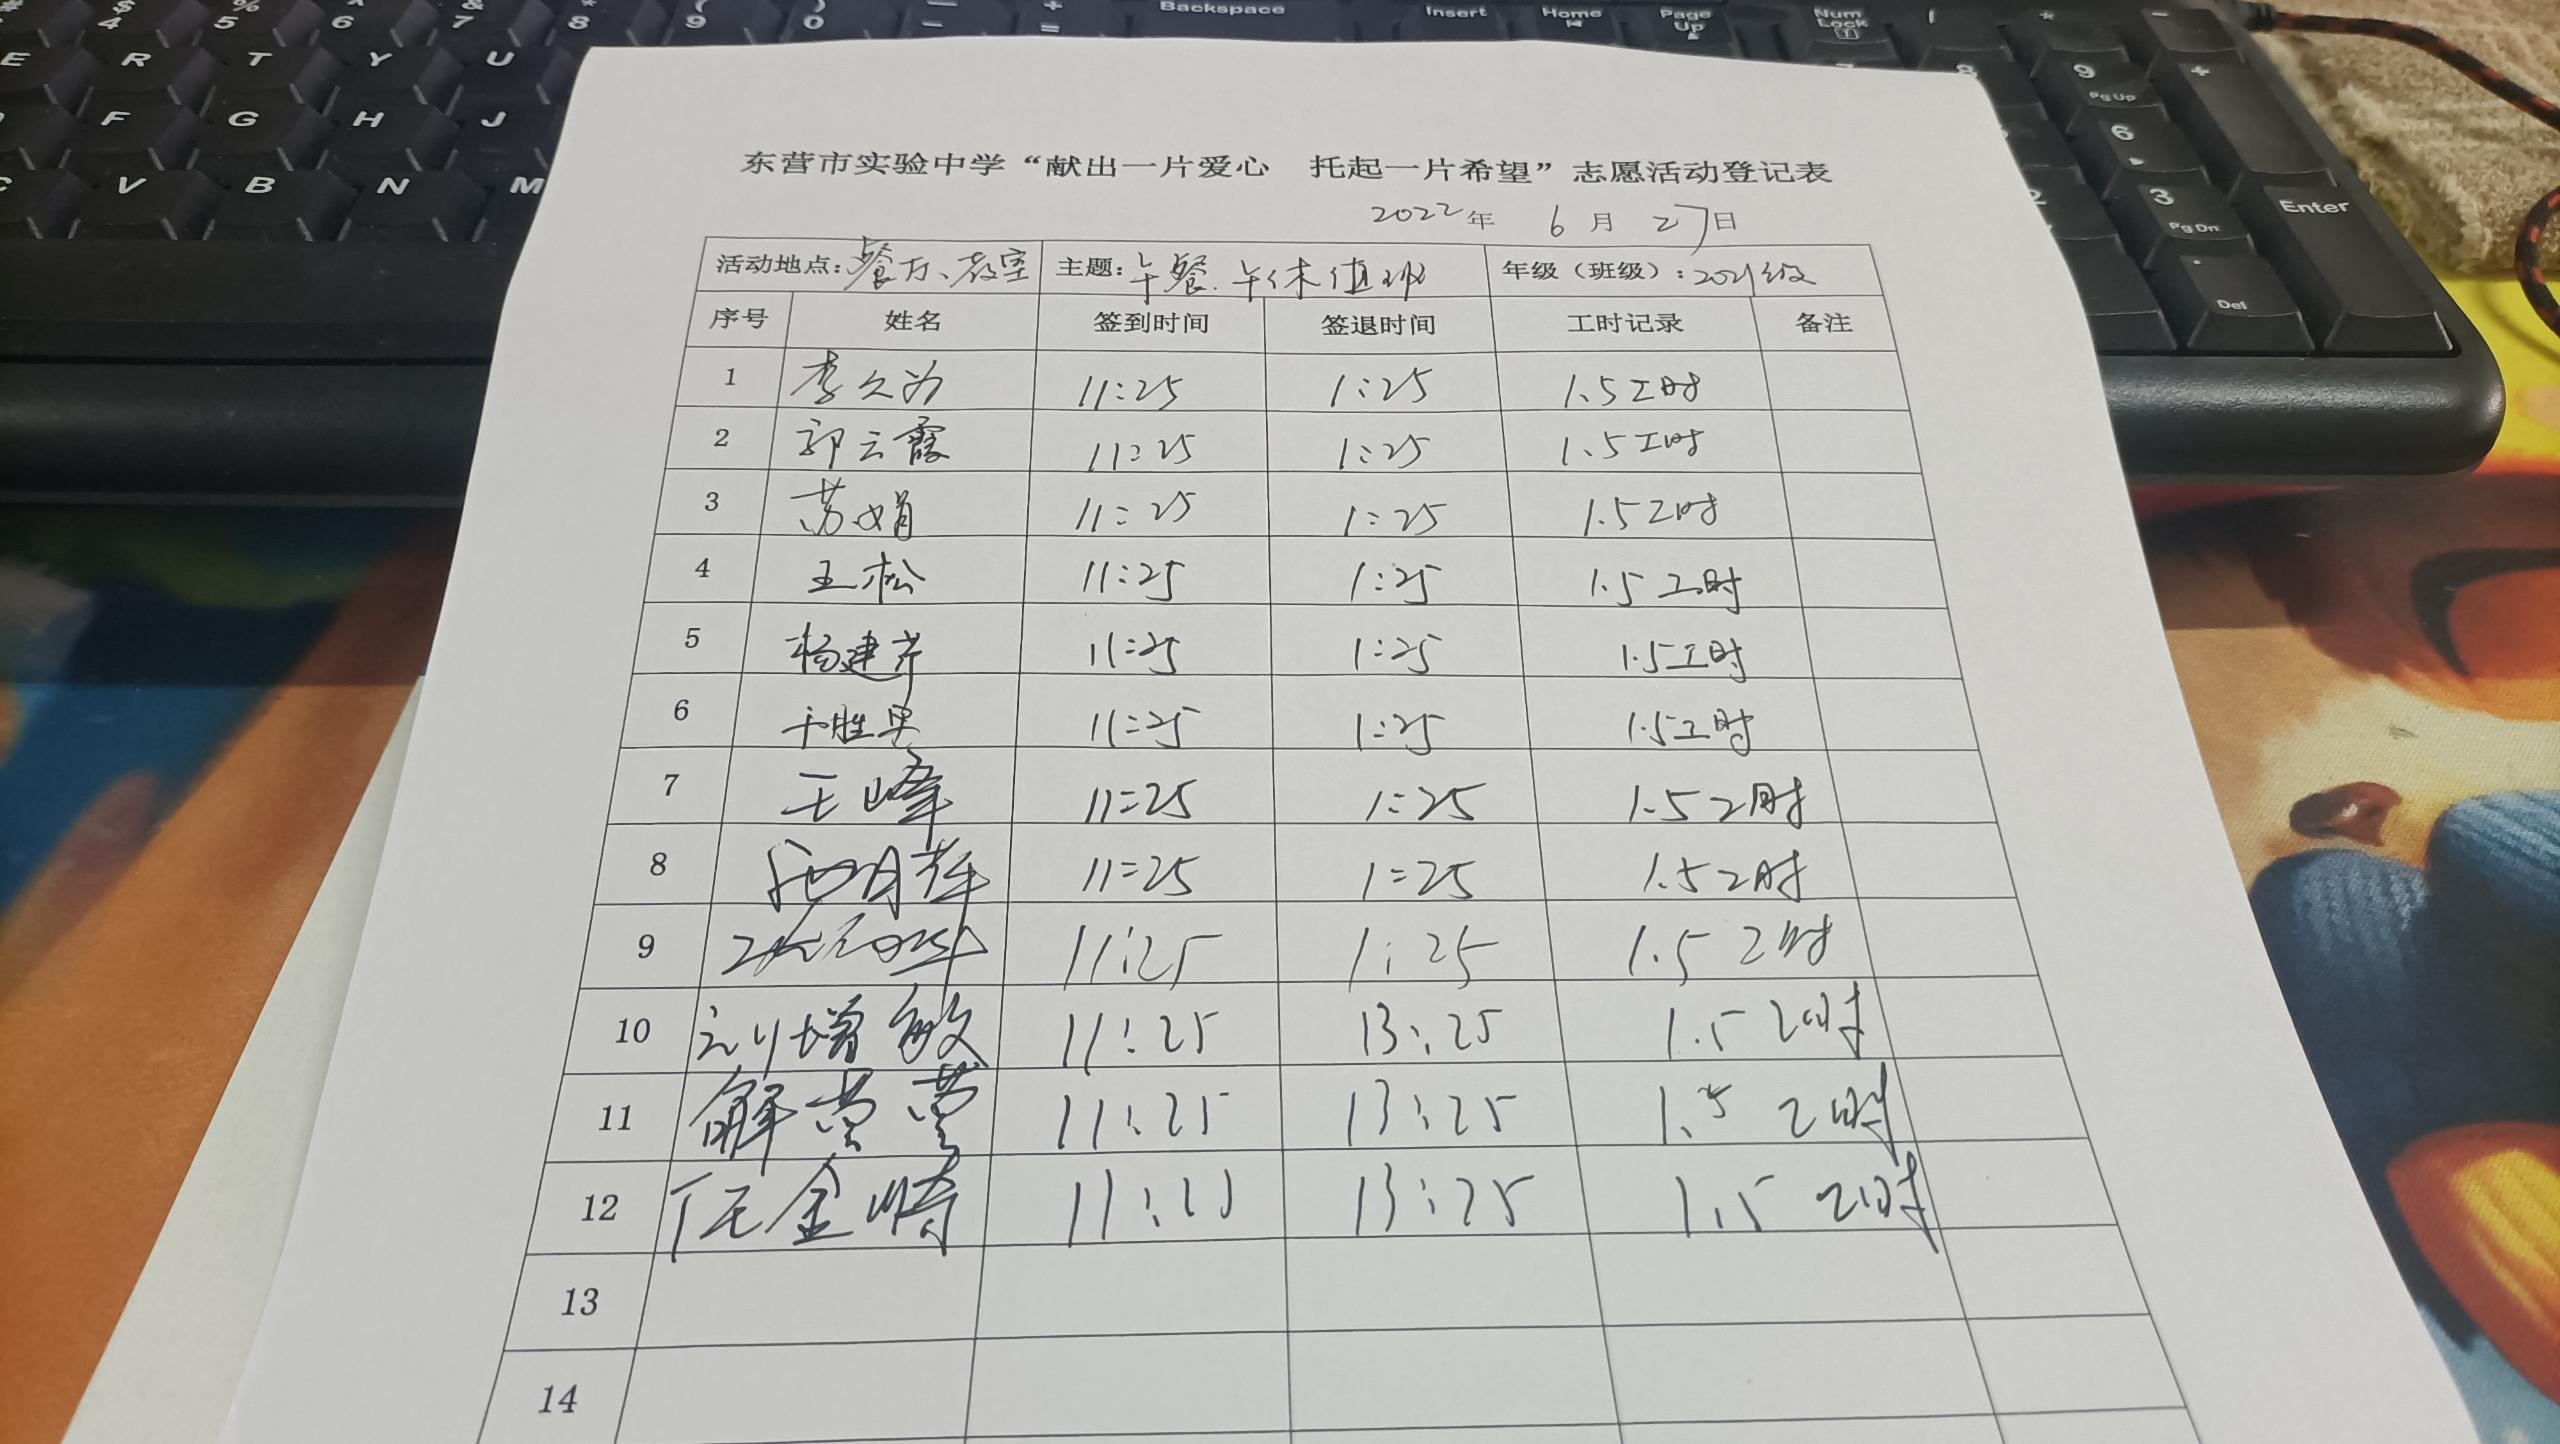 $ 4 % 5 ^ 6 & 7 * 8 ( 9 ) 0 — - + = Backspace Insert Home Page Up Num Lock
E R T Y U 8 9 Pg Up +
F G H J 6
C V B N M 2 3 Pg Dn Enter
Del
东营市实验中学“献出一片爱心 托起一片希望”志愿活动登记表
2022年 6月 27日
活动地点:餐厅、教室 主题:午餐.午休值班 年级（班级）:2021级
序号 姓名 签到时间 签退时间 工时记录 备注
1 李久为 11:25 1:25 1.5工时
2 郭云霞 11:25 1:25 1.5工时
3 苏娟 11:25 1:25 1.5工时
4 王松 11:25 1:25 1.5工时
5 杨建芹 11:25 1:25 1.5工时
6 11:25 1:25 1.5工时
7 王峰 11:25 1:25 1.5工时
8 11:25 1:25 1.5工时
9 11:25 1:25 1.5工时
10 刘增敏 11:25 13:25 1.5工时
11 解营营 11:25 13:25 1.5工时
12 任金崎 11:25 13:25 1.5工时
13
14